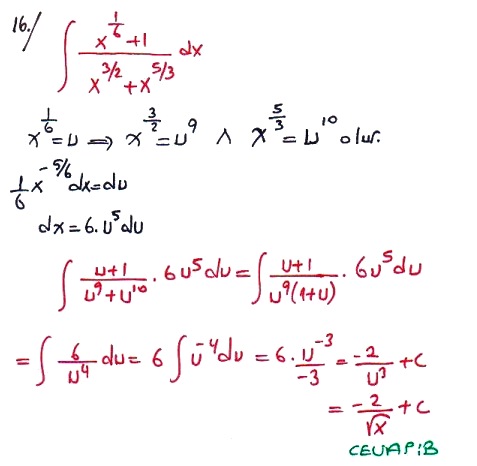 16./ ∫ (x^(1/6) + 1)/(x^(3/2) + x^(5/3)) dx
x^(1/6) = u ⇒ x^(3/2) = u^9 ∧ x^(5/3) = u^10 olur.
1/6 x^(-5/6) dx = du
dx = 6.u^5 du
∫ (u+1)/(u^9 + u^10) · 6u^5 du = ∫ (u+1)/(u^9(1+u)) · 6u^5 du
= ∫ 6/u^4 du = 6 ∫ u^-4 du = 6 · u^-3/-3 = -2/u^3 + c
= -2/√x + c
CEVAP:B